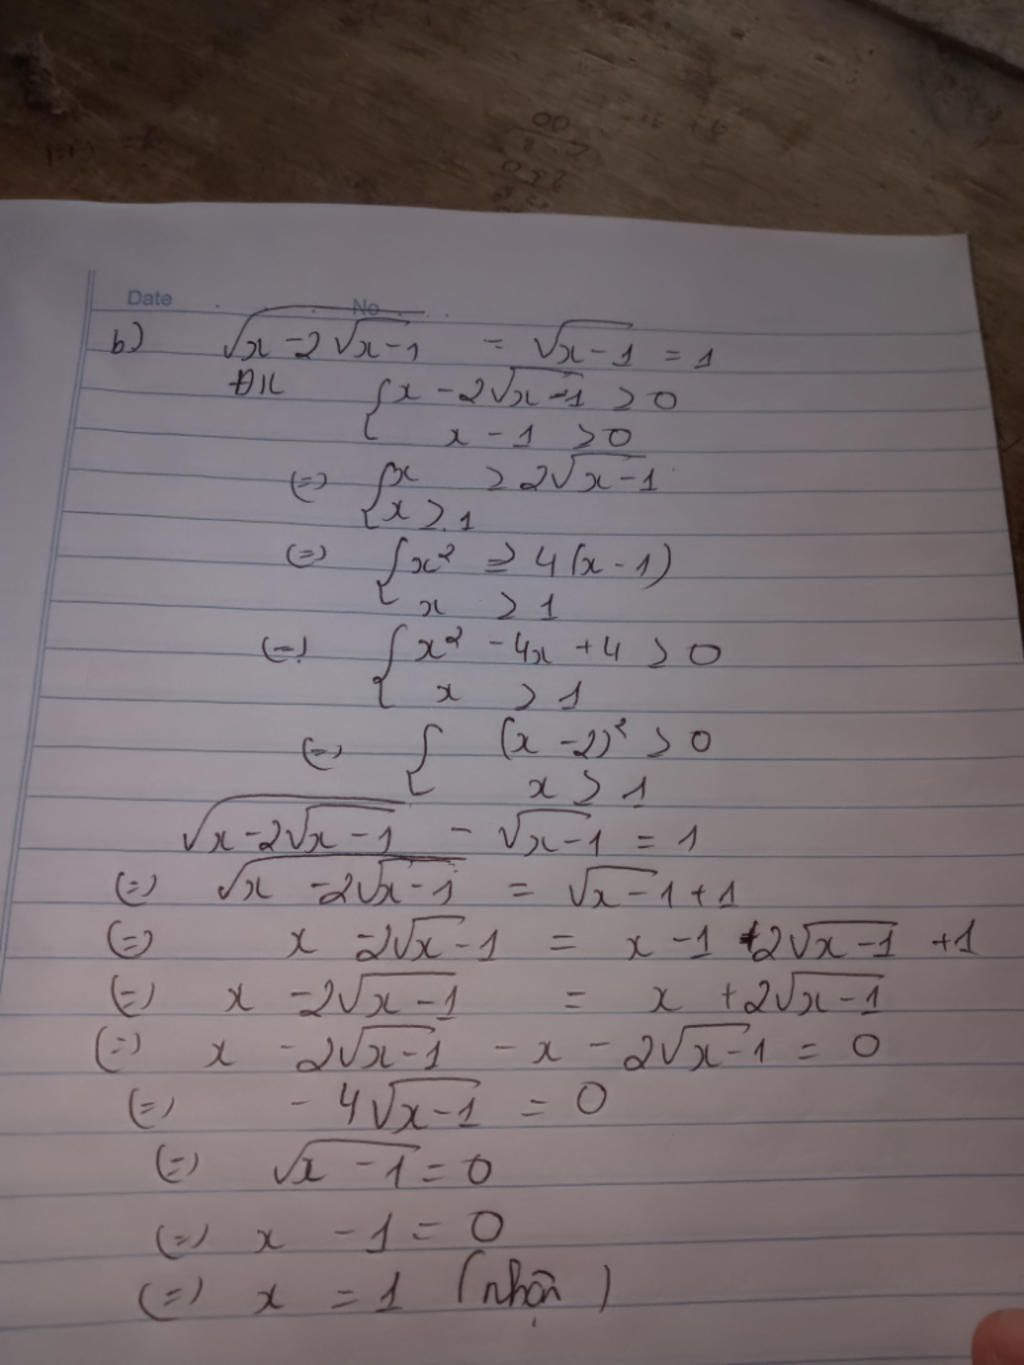 Date No
b) √(x-2√(x-1)) - √(x-1) = 1
ĐK { x - 2√(x-1) ≥ 0
x - 1 ≥ 0
(=) { x ≥ 2√(x-1)
x ≥ 1
(=) { x² ≥ 4(x-1)
x ≥ 1
(=) { x² - 4x + 4 ≥ 0
x ≥ 1
(=) { (x-2)² ≥ 0
x ≥ 1
√(x-2√(x-1)) - √(x-1) = 1
(=) √(x-2√(x-1)) = √(x-1) + 1
(=) x - 2√(x-1) = x - 1 + 2√(x-1) + 1
(=) x - 2√(x-1) = x + 2√(x-1)
(=) x - 2√(x-1) - x - 2√(x-1) = 0
(=) - 4√(x-1) = 0
(=) √(x-1) = 0
(=) x - 1 = 0
(=) x = 1 (nhận)